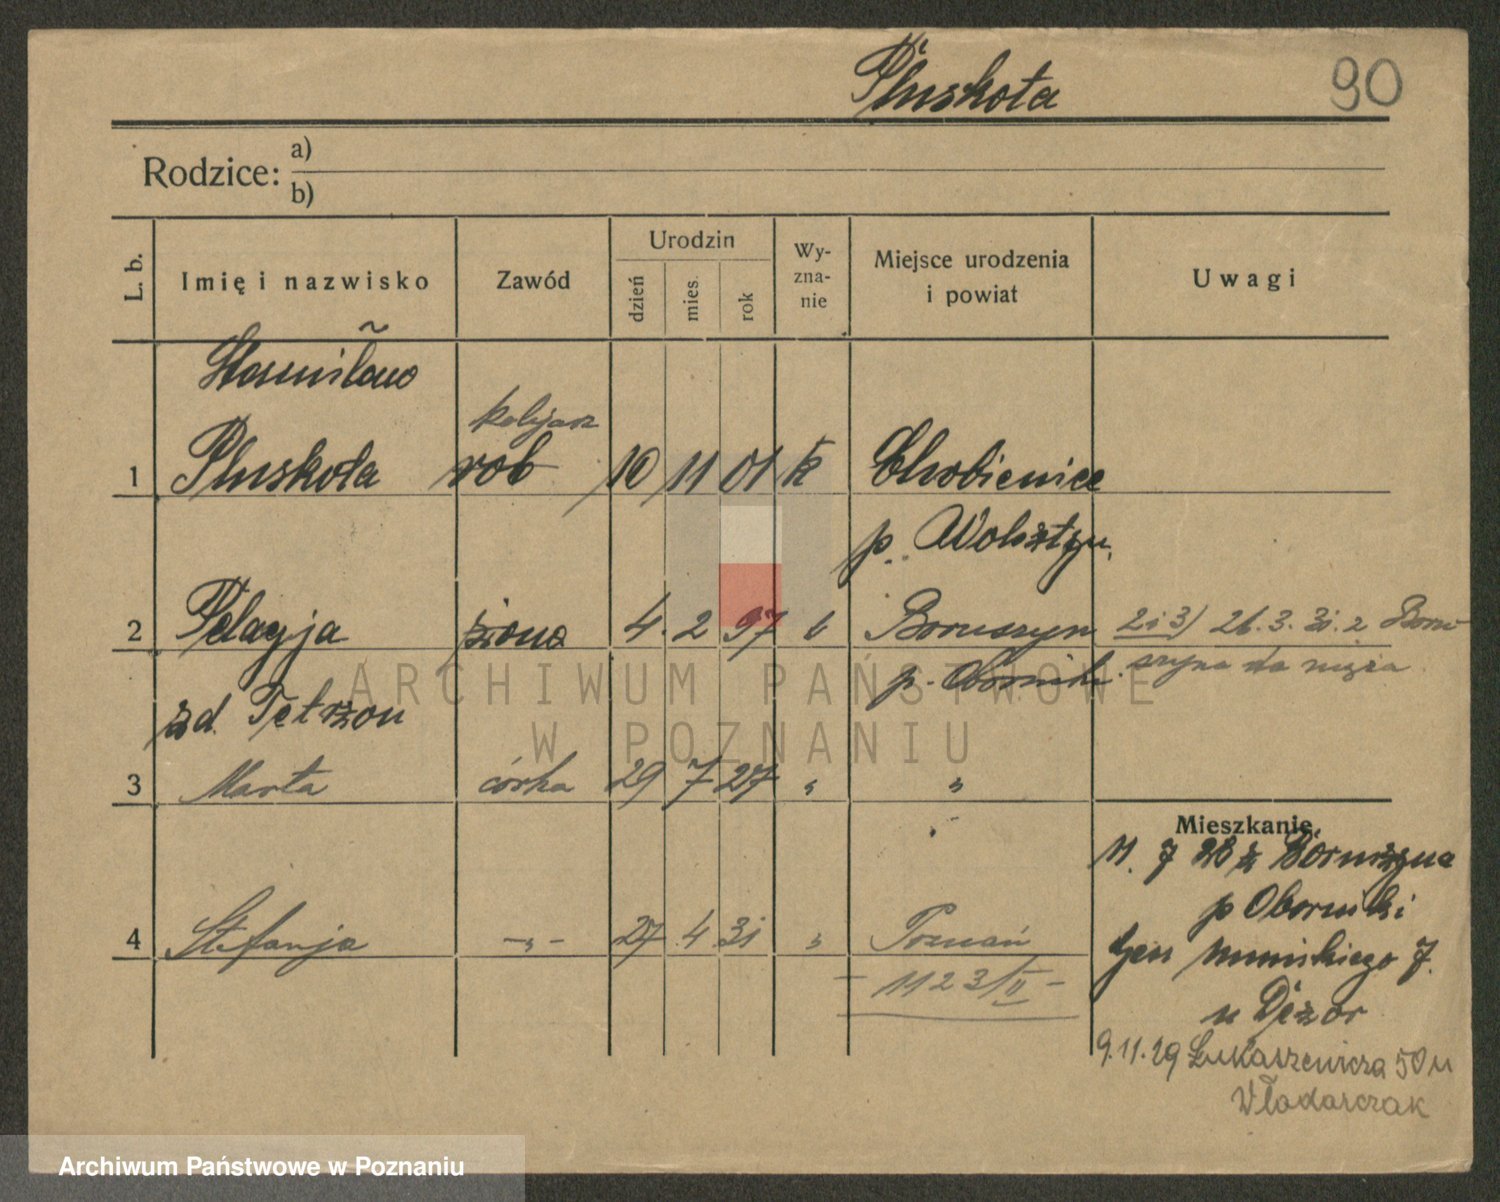 Pluskota
90
Rodzice: a)
b)
L. b.
Imię i nazwisko
Zawód
Urodzin
dzień
mies.
rok
Wy-
zna-
nie
Miejsce urodzenia
i powiat
Uwagi
Stanisław
kolejarz
1 Pluskota rob 10 11 01 k Chobienice
p. Wolsztyn
2 Pelagja żona 4 2 97 k Boruszyn 2 i 3) 26. 3. 31. z Boru-
p. Oborniki szyna
zd. Tetrzon
3 Marta córka 29 7 27 " "
Mieszkanie
11. 7 28 z Boruszyna
p Oborniki
4 Stefanja -"- 27 4 31 " Poznań
Gen 7.
- 1123/II -
u
9.11.29 Łukaszewicza 50 u
Włodarczak
ARCHIWUM PAŃSTWOWE
W POZNANIU
Archiwum Państwowe w Poznaniu